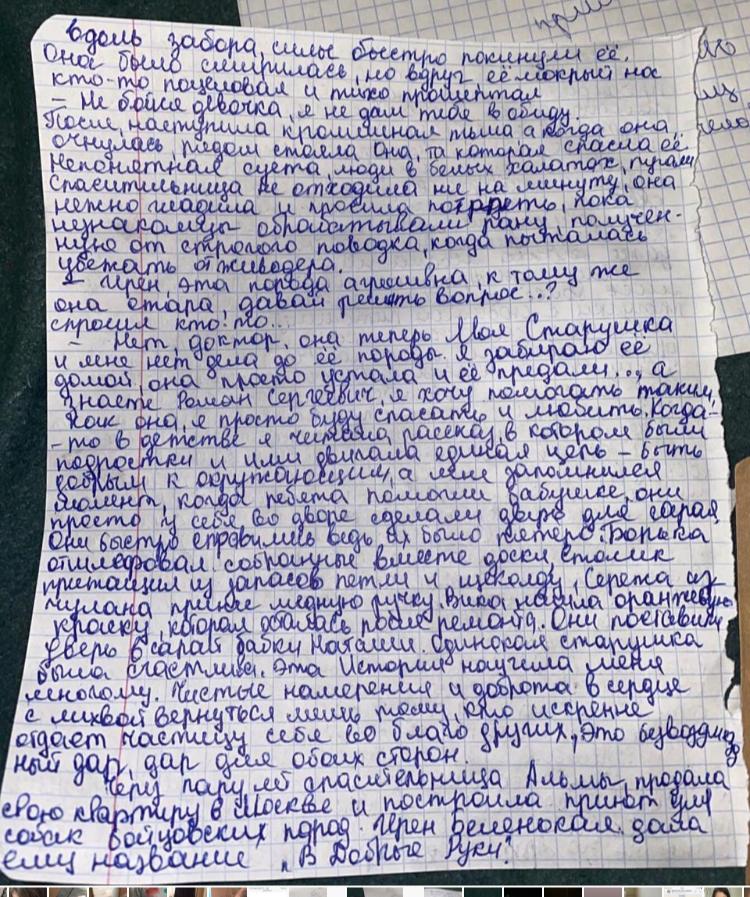 вдоль забора, силы быстро покинули её.
Она было смирилась, но вдруг её мокрый нос
кто-то поцеловал и тихо прошептал
- Не бойся девочка, я не дам тебя в обиду.
После, наступила кромешная тьма а когда она
очнулась, рядом стояла Она, та которая спасла её.
Непонятная суета, люди в белых халатах, пугали
Спасительница не отходила ни на минуту, она
нежно гладила и просила потерпеть, пока
незнакомцы обрабатывали рану получен-
ную от строгого поводка, когда пыталась
убежать от живодёра.
- Ирен, эта порода агрессивна, к тому же
она стара, давай решать вопрос..?
спросил кто-то...
- Нет, доктор, она теперь Моя Старушка
и мне нет дела до её породы. Я забираю её
домой, она просто устала и её предали..., а
знаете Роман Сергеевич, я хочу помогать таким,
как она, я просто буду спасать и любить. Когда-
-то в детстве я читала рассказ, в котором были
подростки и ими двигала единая цель - быть
добрым к окружающим, а мне запомнился
момент, когда ребята помогли бабушке, они
просто у себя во дворе сделали дверь для сарая
Они быстро справились ведь их было пятеро. Борька
отшлифовал собранные вместе доски, столик
притащил из запасов петли и щеколду, Серёга из
чулана принёс медную ручку. Вика нашла оранжевую
краску, которая осталась после ремонта. Они поставили
дверь в сарай бабки Натальи. Одинокая старушка
была счастлива. Эта История научила меня
многому. Чистые намерения и доброта в сердце
с лихвой вернуться лишь тому, кто искренне
отдаёт частицу себя во благо других, это безвозмезд
ный дар, дар для обоих сторон.
Через пару лет спасительница Альмы, продала
свою квартиру в Москве и построила приют для
собак бойцовских пород. Ирен Беленокая дала
ему название „В Добрые Руки".